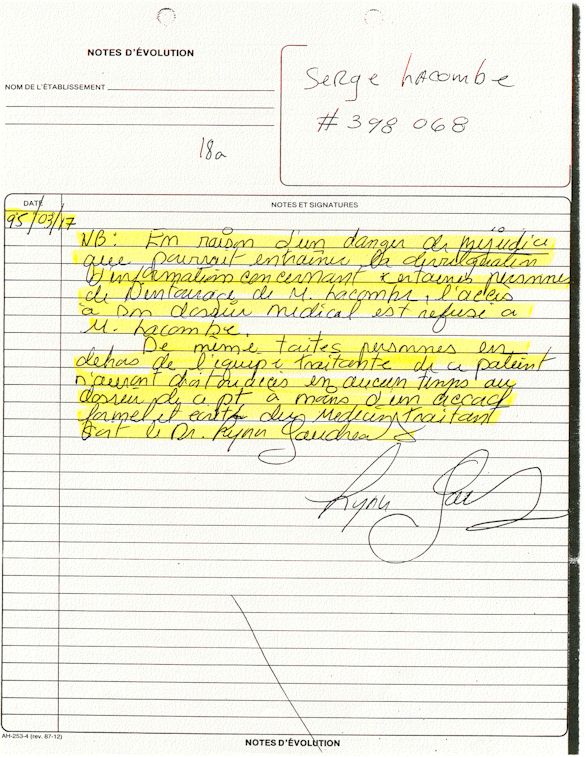 NOTES D'ÉVOLUTION
NOM DE L'ÉTABLISSEMENT
Serge Lacombe
# 398 068
18a
DATE
NOTES ET SIGNATURES
95/03/17
NB: En raison d'un danger de préjudice
que pourrait entraîner la divulgation
d'information concernant certaines personnes
de l'entourage de M. Lacombe, l'accès
à son dossier médical est refusé à
M. Lacombe.
De même toutes personnes en
dehors de l'équipe traitante de ce patient
n'auront droit d'accès en aucun temps au
dossier de ce pt à moins d'un accord
formel et écrit du Médecin traitant
soit le Dr.
AH-253-4 (rev. 87-12)
NOTES D'ÉVOLUTION